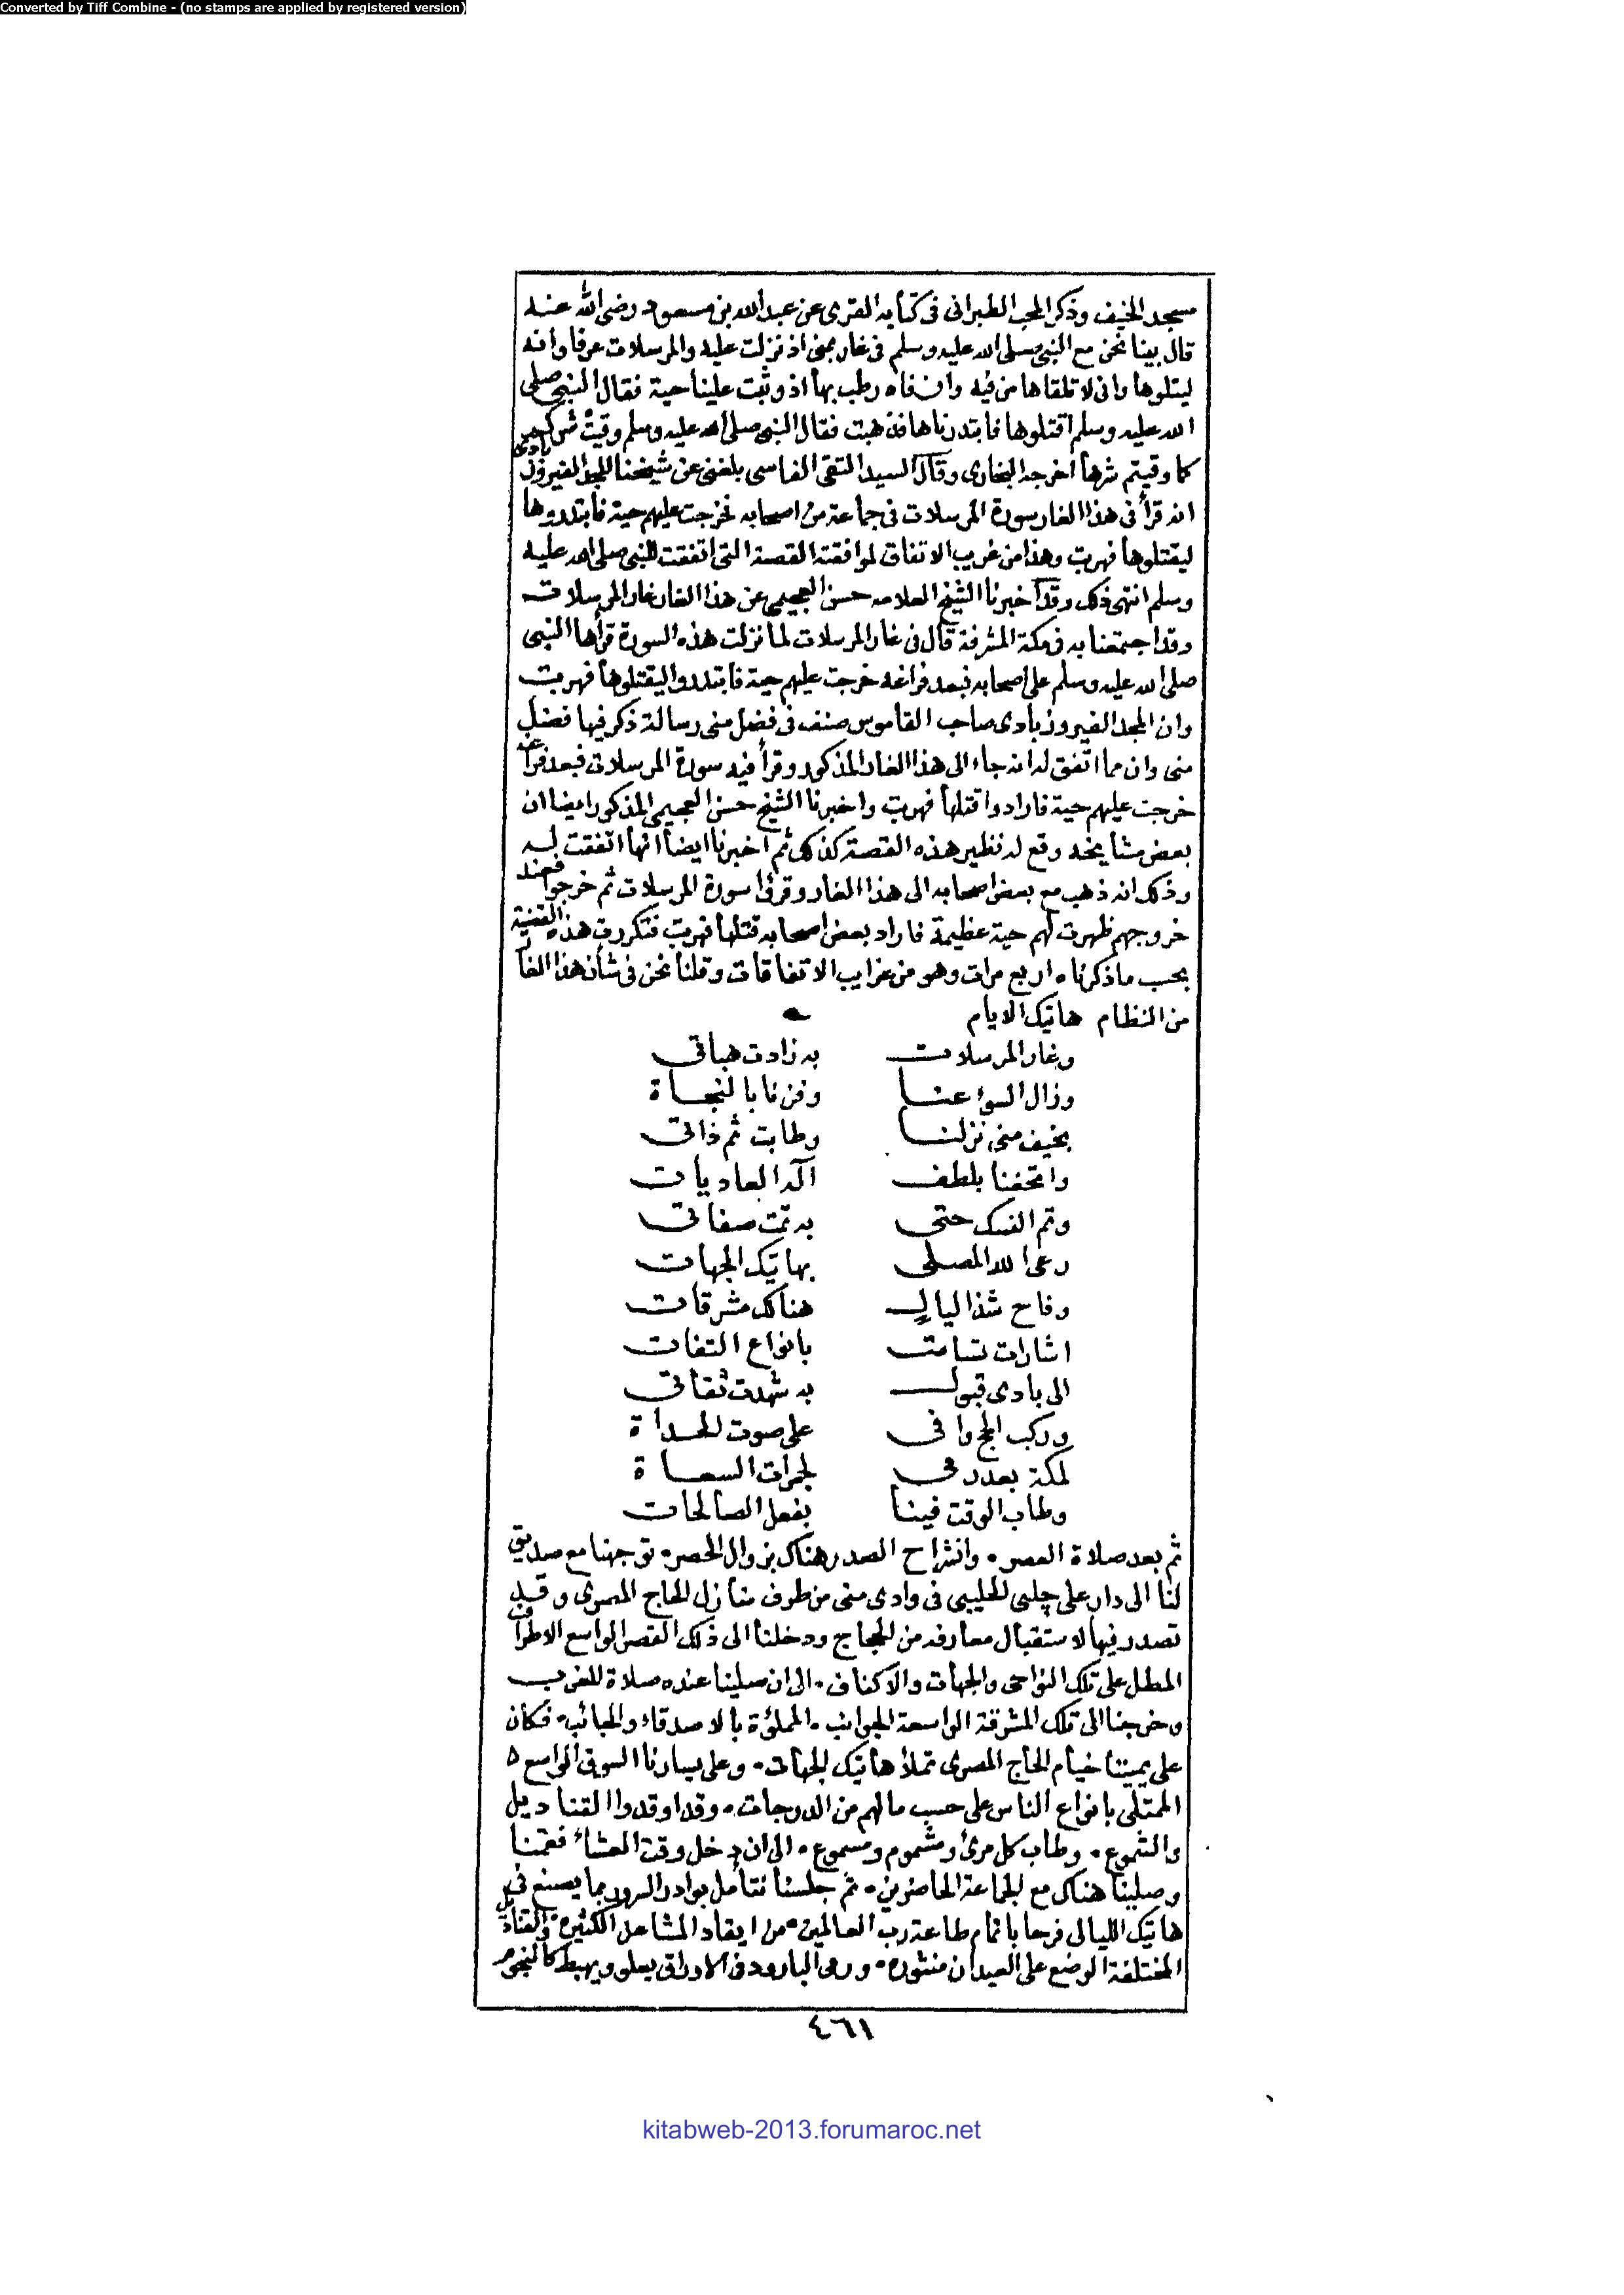 Converted by Tiff Combine - (no stamps are applied by registered version)
مسجد الخيف وذكر المحب الطبراني في كتابه القرى عن عبد الله بن مسعود رضي الله عنه
قال بينا نحن مع النبي صلى الله عليه وسلم في غار بمنى اذ نزلت عليه والمرسلات عرفا وانه
ليتلوها واني لاتلقاها من فيه وان فاه رطب بها اذ وثبت علينا حية فقال النبي صلى
الله عليه وسلم اقتلوها فابتدرناها فذهبت فقال النبي صلى الله عليه وسلم وقيت شركم
كما وقيتم شرها اخرجه البخاري وقال السيد التقي الفاسي بلغني عن شيخنا المجد الفيروزابادي
انه قرأ في هذا الغار سورة المرسلات في جماعة من اصحابه فخرجت عليهم حية فابتدروها
ليقتلوها فهربت وهذا من غريب الاتفاق لموافقته القصة التي اتفقت للنبي صلى الله عليه
وسلم انتهى ذلك وقد اخبرنا الشيخ العلامه حسن العجيمي عن هذا الغار غار المرسلات
وقد اجتمعنا به في مكة المشرفة قال في غار المرسلات لما نزلت هذه السورة قرأها النبي
صلى الله عليه وسلم على اصحابه فبعد فراغه خرجت عليهم حية فابتدروا ليقتلوها فهربت
وان المجد الفيروزبادى صاحب القاموس صنف في فضل منى رسالة ذكر فيها فضل
منى وان مما اتفق له انه جاء الى هذا الغار المذكور وقرأ فيه سورة المرسلات فبعد فراغه
خرجت عليهم حية فارادوا قتلها فهربت واخبرنا الشيخ حسن العجيمي المذكور ايضا ان
بعض مشايخه وقع له نظير هذه القصة كذلك ثم اخبرنا ايضا انها اتفقت له
وذلك انه ذهب مع بعض اصحابه الى هذا الغار وقرئا سورة المرسلات ثم خرجوا فعند
خروجهم ظهرت لهم حية عظيمة فاراد بعض اصحابه قتلها فهربت فتكررت هذه القضية
بحسب ما ذكرناه اربع مرات وهو من غرايب الاتفاقات وقلنا نحن في شأن هذا الغا
من النظام هاتيك الايام
وغار المرسلات به زادت هباتي
وزال السوء عنا وفزنا بالنجاة
بخيف منى نزلنا وطابت ثم ذاتي
واتحفنا بلطف اله العاديات
وتم النسك حتى به تمت صفاتي
رعى الله المصلى بهاتيك الجهات
وفاح شذا ليال هناك مشرقات
اشارات تسامت بانواع التفات
الى بادى قبول به شهدت ثقاتي
وركب الحج وافى على صوت الحداة
لمكة بعد رمي لجمرات السعاة
وطاب الوقت فينا بفعل الصالحات
ثم بعد صلاة العصر • وانشراح الصدر هناك بزوال الحصر • توجهنا مع صديق
لنا الى دار على چلبى الحليبى في وادى منى من طرف منازل الحاج المصرى وقد
تصدر فيها لاستقبال معارفه من الحجاج ودخلنا الى ذلك القصر الواسع الاطراف
المطل على تلك النواحى والجهات والاكناف • الى ان صلينا عنده صلاة المغرب
وخرجنا الى تلك المشرقة الواسعة الجوانب • المملؤة بالاصدقاء والحبائب • فكان
على يميننا خيام الحاج المصرى تملأ هاتيك الجهات • وعلى يسارنا السوق الواسع
الممتلى بانواع الناس على حسب مالهم من الدرجات • وقد اوقدوا القناديل
والشموع • وطاب كل مرئ ومشموم ومسموع • الى ان دخل وقت العشاء فقمنا
وصلينا هناك مع الجماعة الحاضرين • ثم جلسنا نتأمل بوادر السرور بما يصنع في
هاتيك الليالى فرحا باتمام طاعة رب العالمين • من ايقاد المشاعل الكثيره • والقناديل
المختلفة الوضع على العيدان منثوره • ورمى البارود في الاوراق يعلو ويهبط كالنجوم
٤٦١
kitabweb-2013.forumaroc.net